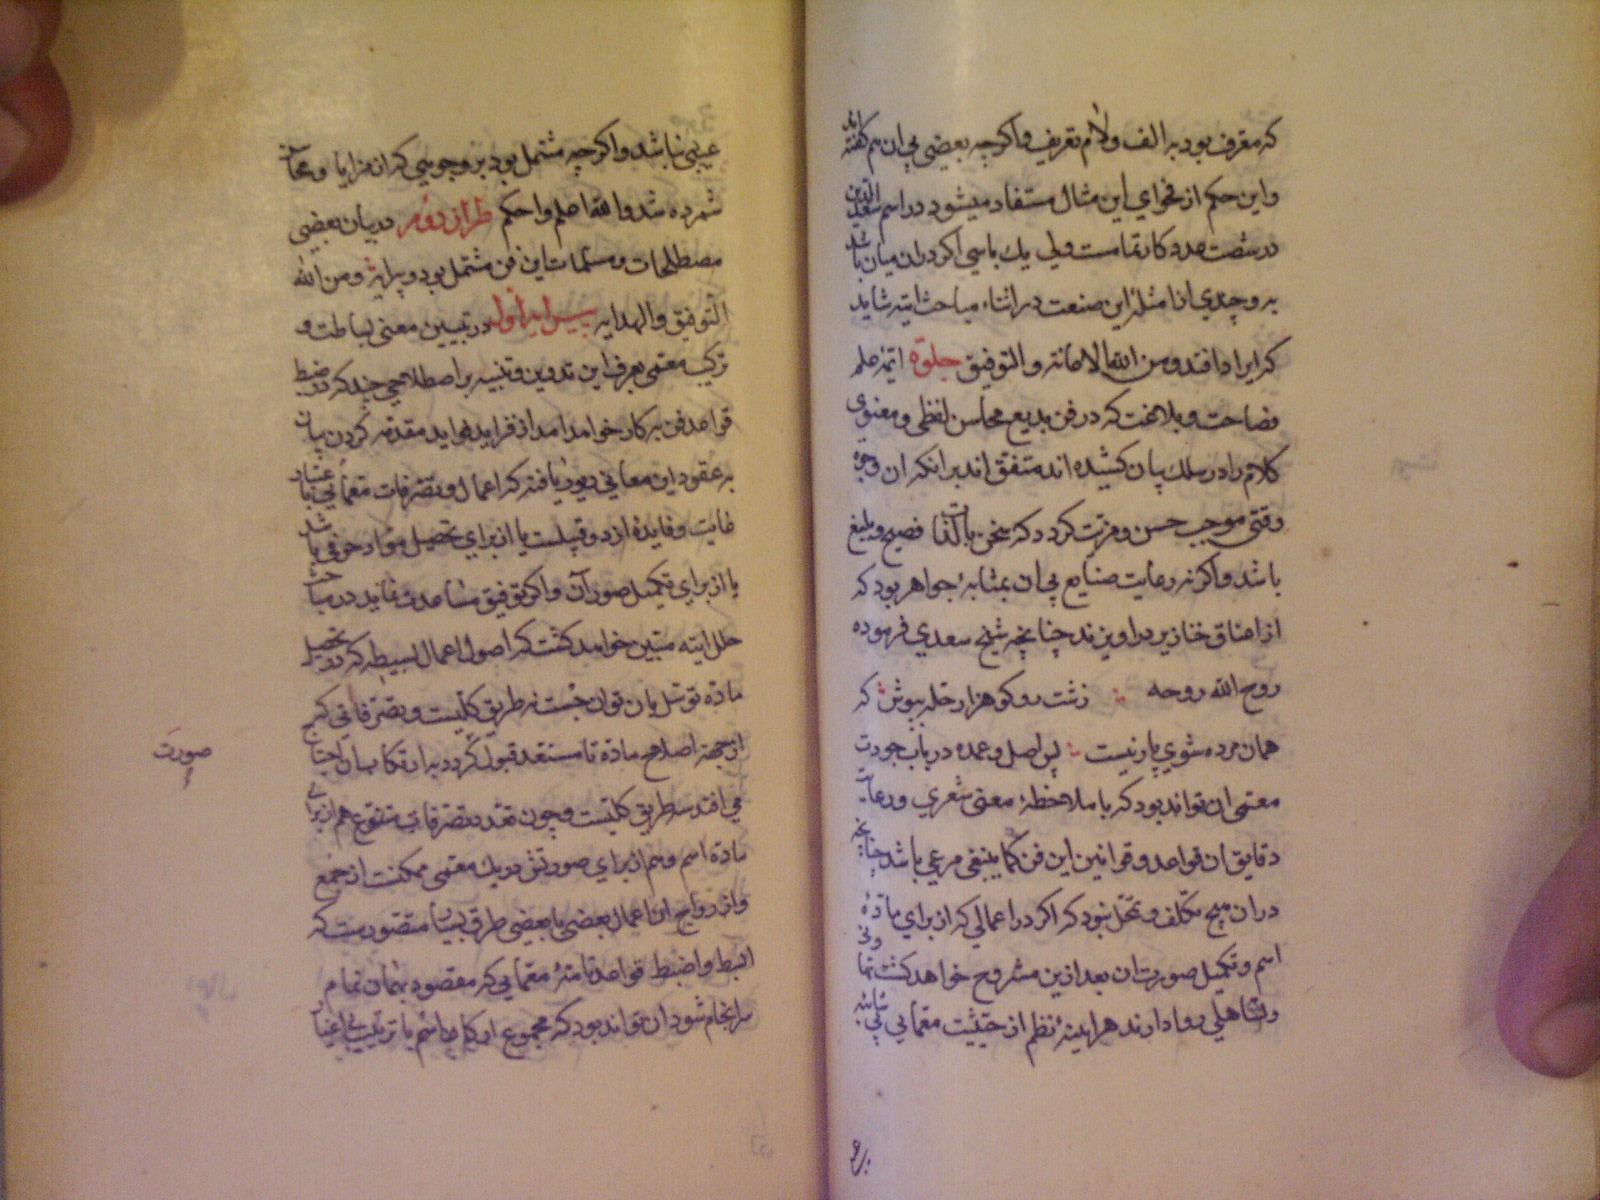 که معرف بود به الف ولام تعریف واکرچه بعضی بی ان هم کفته اند
واین حکم از فحوای این مثال مستفاد میشود در اسم سعد الدین
در شصت عدد کار تمامست ولی یك با سی اکر دران میان باشد
بر وجهی از امثلهٔ این صنعت در اثناء مباحث اتیه شاید
که ایراد افتد ومن الله الاعانه والتوفیق جلوة ایمهٔ علم
فصاحت وبلاغت که در فن بدیع محاسن لفظی ومعنوی
کلام را در سلك بیان کشیده اند متفق اند برانکه ان وجوه
وقتی موجب حسن ومزیت کردد که سخن بالذات فصیح وبلیغ
باشد واکر نه رعایت صنایع بی ان بمثابهٔ جواهر بود که
از اعناق خنازیر در اویزند چنانچه شیخ سعدی فرموده
روح الله روحه زشت رو کو هزار حله بپوش که
همان مرده شوی پارنیست پس اصل وعمده در باب جودت
معمی ان تواند بود که با ملاحظهٔ معنی شعری ورعایت
دقایق ان قواعد وقوانین این فن کما ینبغی مرعی باشد چنانچه
در ان هیچ تکلف وتمحل نبود که اکر در اعمالی که از برای مادهٔ
اسم وتکمیل صورت ان بعد ازین مشروح خواهد کشت
وتساهلی روا دارند هراینهٔ نظم از حیثیت معمایی بی شایبه
برو
عیبی نباشد واکرچه مشتمل بود بر وجوهی که از مزایا و
شمرده شد والله اعلم واحکم طراز دوم در بیان بعضی
مصطلحات ومتممات این فن مشتمل بود و پیرایه ومن الله
التوفیق والهدایه پیرایهٔ اول در تبیین معنی بساطت و
ترکیب معمی بعرف این تدوین وتنبیه بر اصطلاحی چند که در ضبط
قواعد فن به کار خواهد امد از فراید فواید مقدمه کردن بیان
بر عقود این معانی زیور یافته که اعمال وتصرفات معمایی باعتبار
غایت وفایدهٔ از دو قبیلست یا از برای تحصیل مواد حروفی باشد
یا از برای تکمیل صور آن واکر توفیق مساعدت نماید در مباحث
حلل اتیه مبین خواهد کشت که اصول اعمال بسیطه که در تحصیل
ماده توسل بان توان جست نه طریق کلیست وتصرفاتی که
از جهة اصلاح ماده تا مستعد قبول کردد بارتکاب ان احتیاج
می افتد سه طریق کلیست وچون تعدد تصرفات متنوع هم از برای
مادهٔ اسم وهم از برای صورتش در یك معمی ممکنست از جمع
وازدواج ان اعمال بعضی با بعضی طرق بسیار متصورست که
ابسط واضبط قواعد تامهٔ معمایی که مقصود بهمان تمام
سرانجام شود ان تواند بود که مجموع ارکان اسم با ترتیب بی اعتبار
صورت